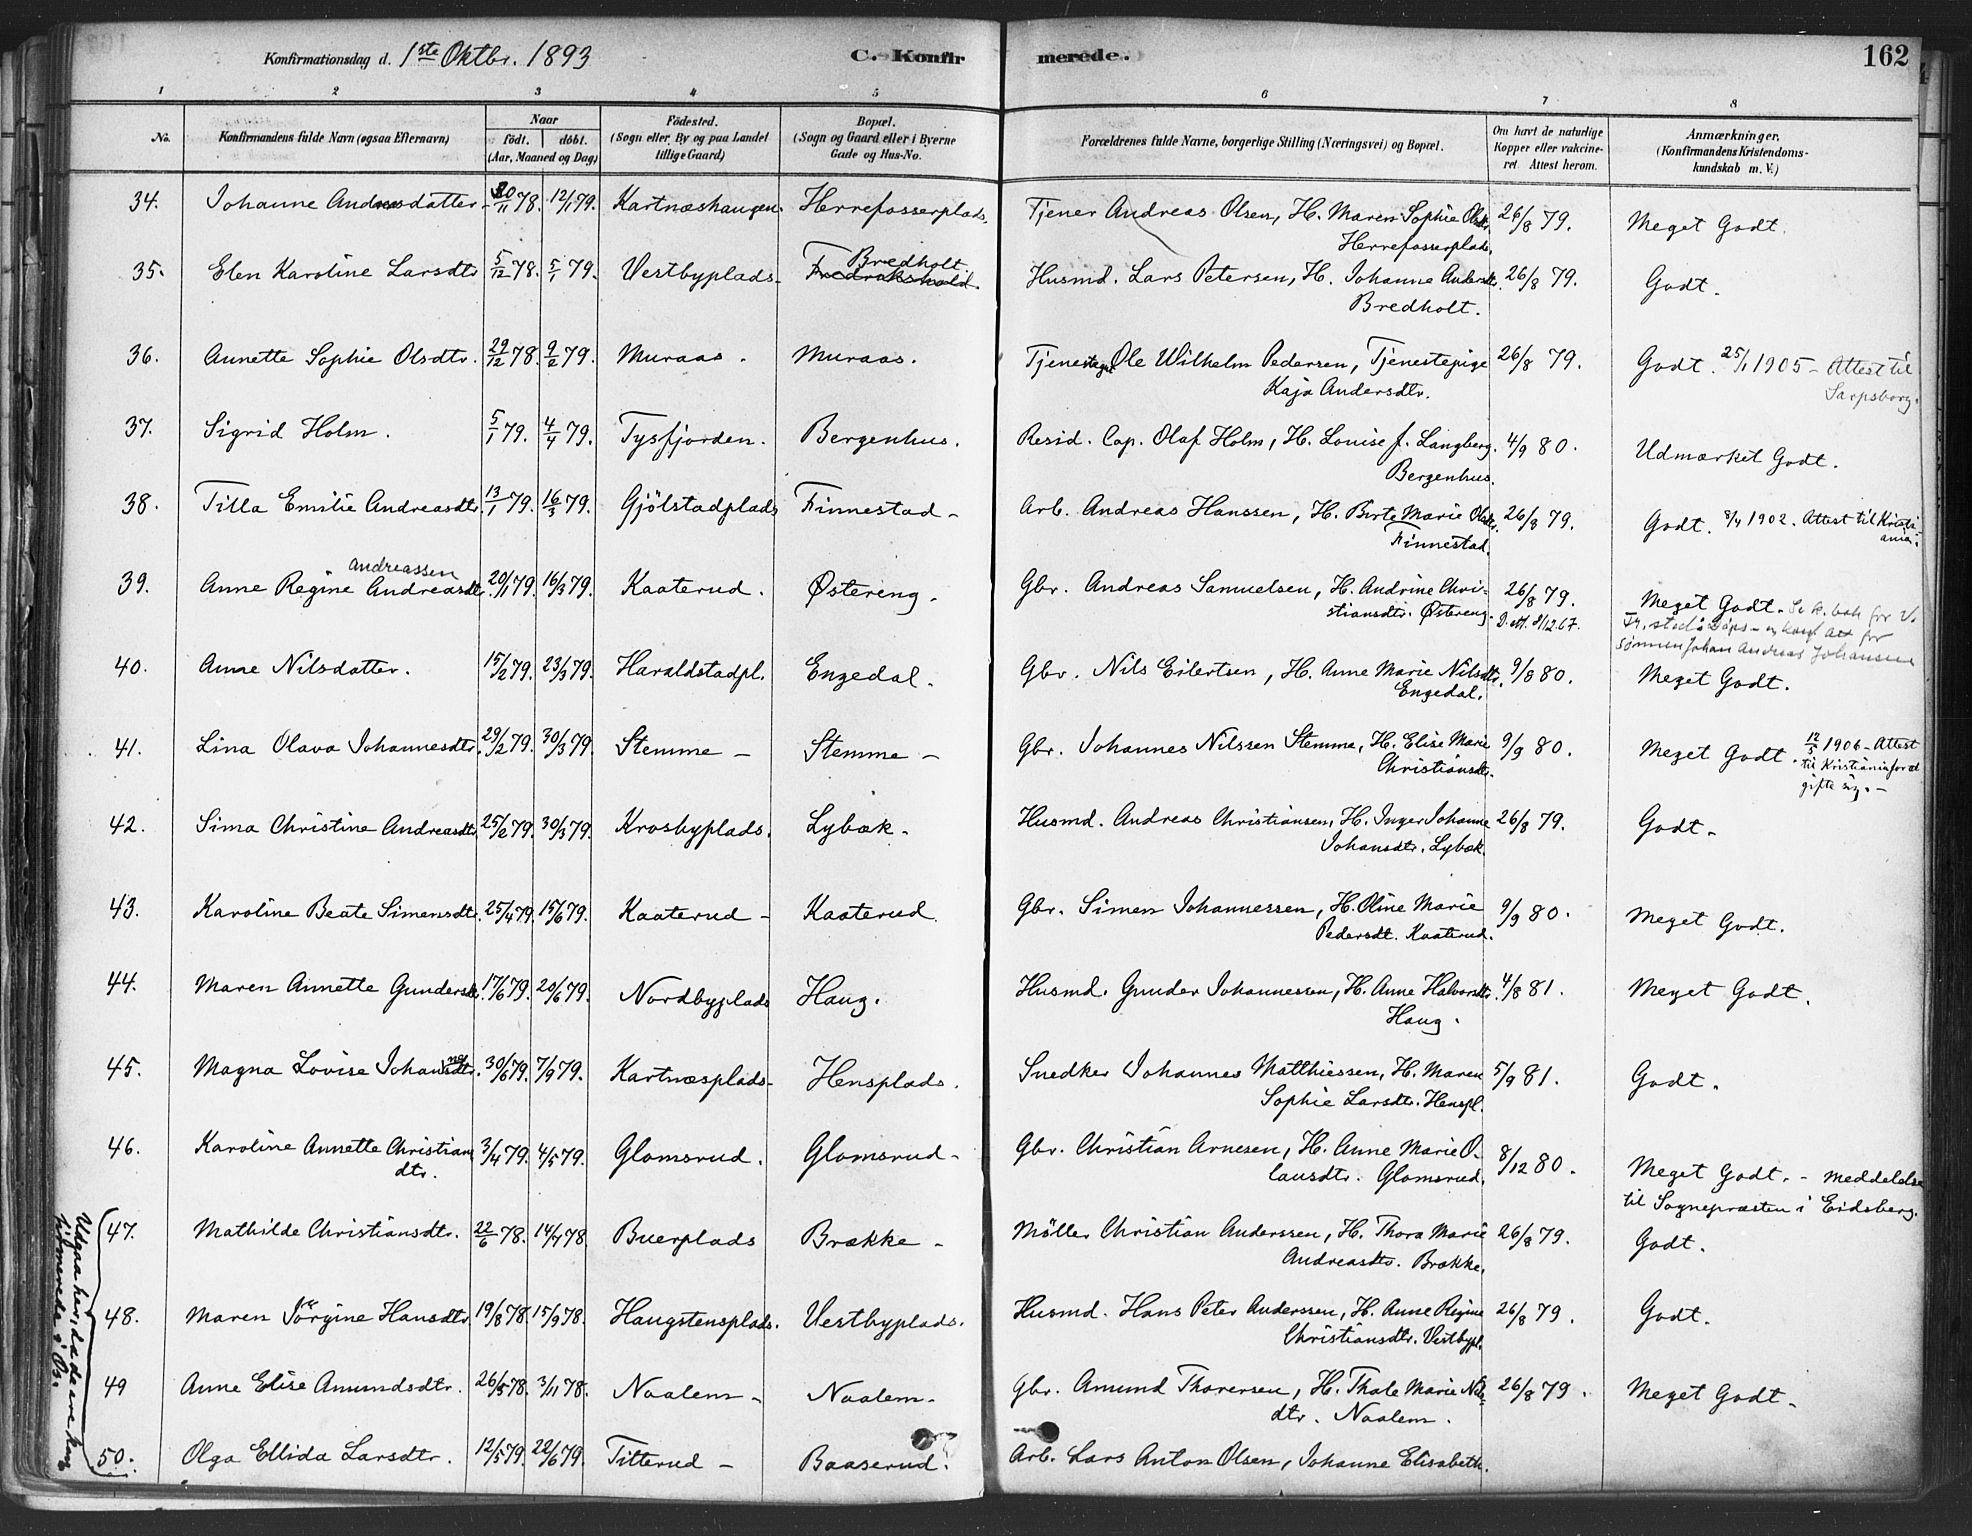 Konfirmationsdag d. 1ste Oktbr. 1893
C. Konfirmerede.
162
1 2 3 4 5 6 7 8
No.
Konfirmandens fulde Navn (ogsaa Efternavn)
Naar
födt. döbt.
(Aar, Maaned og Dag)
Födested.
(Sogn eller By og paa Landet
tillige Gaard)
Bopæl.
(Sogn og Gaard eller i Byerne
Gade og Hus-No.
Forældrenes fulde Navne, borgerlige Stilling (Næringsvei) og Bopæl.
Om havt de naturlige
Kopper eller vakcine-
ret. Attest herom.
Anmærkninger.
(Konfirmandens Kristendoms-
kundskab m. V.)
34. Johanne Andreasdatter 20/11 78. 12/1 79. Kartnæshaugen. Herrefosserplads. Tjener Andreas Olsen, H. Maren Sophie Olsdtr. 26/8 79. Meget Godt.
Herrefosserplads.
35. Elen Karoline Larsdtr 5/12 78. 5/1 79. Vestbyplads. Bredholt Husmd. Lars Petersen, H. Johanne Andersdtr. 26/8 79. Godt.
Fredrikshald.
Bredholt.
36. Annette Sophie Olsdtr. 29/12 78. 9/2 79. Muraas. Muraas. Tjenestegut Ole Wilhelm Pedersen, Tjenestepige 26/8 79. Godt. 25/1 1905 - Attest til
Kaja Andersdtr. Sarpsborg.
37. Sigrid Holm. 5/1 79. 4/4 79. Tysfjorden. Bergenhus. Resid. Cap. Olaf Holm, H. Louise f. Langberg. 4/9 80. Udmærket Godt.
Bergenhus.
38. Tilla Emilie Andreasdtr. 13/1 79. 16/3 79. Gjölstadplads Finnestad - Arb. Andreas Hanssen, H. Birte Marie Olsdtr. 26/8 79. Godt. 8/4 1902. Attest til Kristi-
Finnestad. ania.
39. Anne Regine Andreasdtr. Andreassen 20/1 79. 16/3 79. Kaaterud. Østereng. Gbr. Andreas Samuelsen, H. Andrine Chri- 26/8 79. Meget Godt. Se k. bok for
stiansdtr. Østereng.
sønnen Johan Andreas Johansen
40. Anne Nilsdatter. 15/2 79. 23/3 79. Haraldstadpl. Engedal. Gbr. Nils Eilertsen, H. Anne Marie Nilsdtr. 9/8 80. Meget Godt.
Engedal.
41. Lina Olava Johannesdtr. 29/2 79. 30/3 79. Stemme - Stemme - Gbr. Johannes Nilssen Stemme, H. Elise Marie 9/9 80. Meget Godt. 12/5 1906 - Attest
Christiansdtr. til Kristiania for at
gifte sig. -
42. Sima Christine Andreasdtr. 25/2 79. 30/3 79. Krosbyplads. Lybæk. Husmd. Andreas Christiansen, H. Inger Johanne 26/8 79. Godt.
Johansdtr. Lybæk.
43. Karoline Beate Simensdtr. 25/4 79. 15/6 79. Kaaterud - Kaaterud. Gbr. Simen Johannessen, H. Oline Marie 9/9 80. Meget Godt.
Pedersdt. Kaaterud.
44. Maren Annette Gundersdtr. 17/6 79. 20/6 79. Nordbyplads Haug. Husmd. Gunder Johannessen, H. Anne Halvorsdtr. 4/8 81. Meget Godt.
Haug.
45. Magna Lovise Johannesdtr. 30/6 79. 7/9 79. Kartnæsplads. Hensplads. Snedker Johannes Matthiessen, H. Maren 5/9 81. Godt.
Sophie Larsdtr. Henspl.
46. Karoline Annette Christians 3/4 79. 4/5 79. Glomsrud. Glomsrud - Gbr. Christian Arnesen, H. Anne Marie O- 8/12 80. Meget Godt. - Meddelelse
dtr. lausdtr. Glomsrud. til Sognepræsten i Eidsberg.
47. Mathilde Christiansdtr. 22/6 78. 14/7 78 Buerplads Brække - Möller Christian Anderssen, H. Thora Marie 26/8 79. Godt.
Andreasdtr. Brække.
48. Maren Jörgine Hansdtr. 19/8 78. 15/9 78. Haugstensplads. Vestbyplads. Husmd. Hans Peter Anderssen, H. Anne Regine 26/8 79. Godt.
Christiansdtr. Vestbypl.
49 Anne Elise Amundsdtr. 26/5 78. 3/11 78. Naalem - Naalem. Gbr. Amund Thoresen, H. Thale Marie Nils- 26/8 79. Meget Godt.
dtr. Naalem.
50. Olga Ellida Larsdtr. 12/5 79. 22/6 79. Titterud - Baaserud. Arb. Lars Anton Olsen, Johanne Elisabeth.
Udgaa her, da de ere kon-
firmerede i Os.